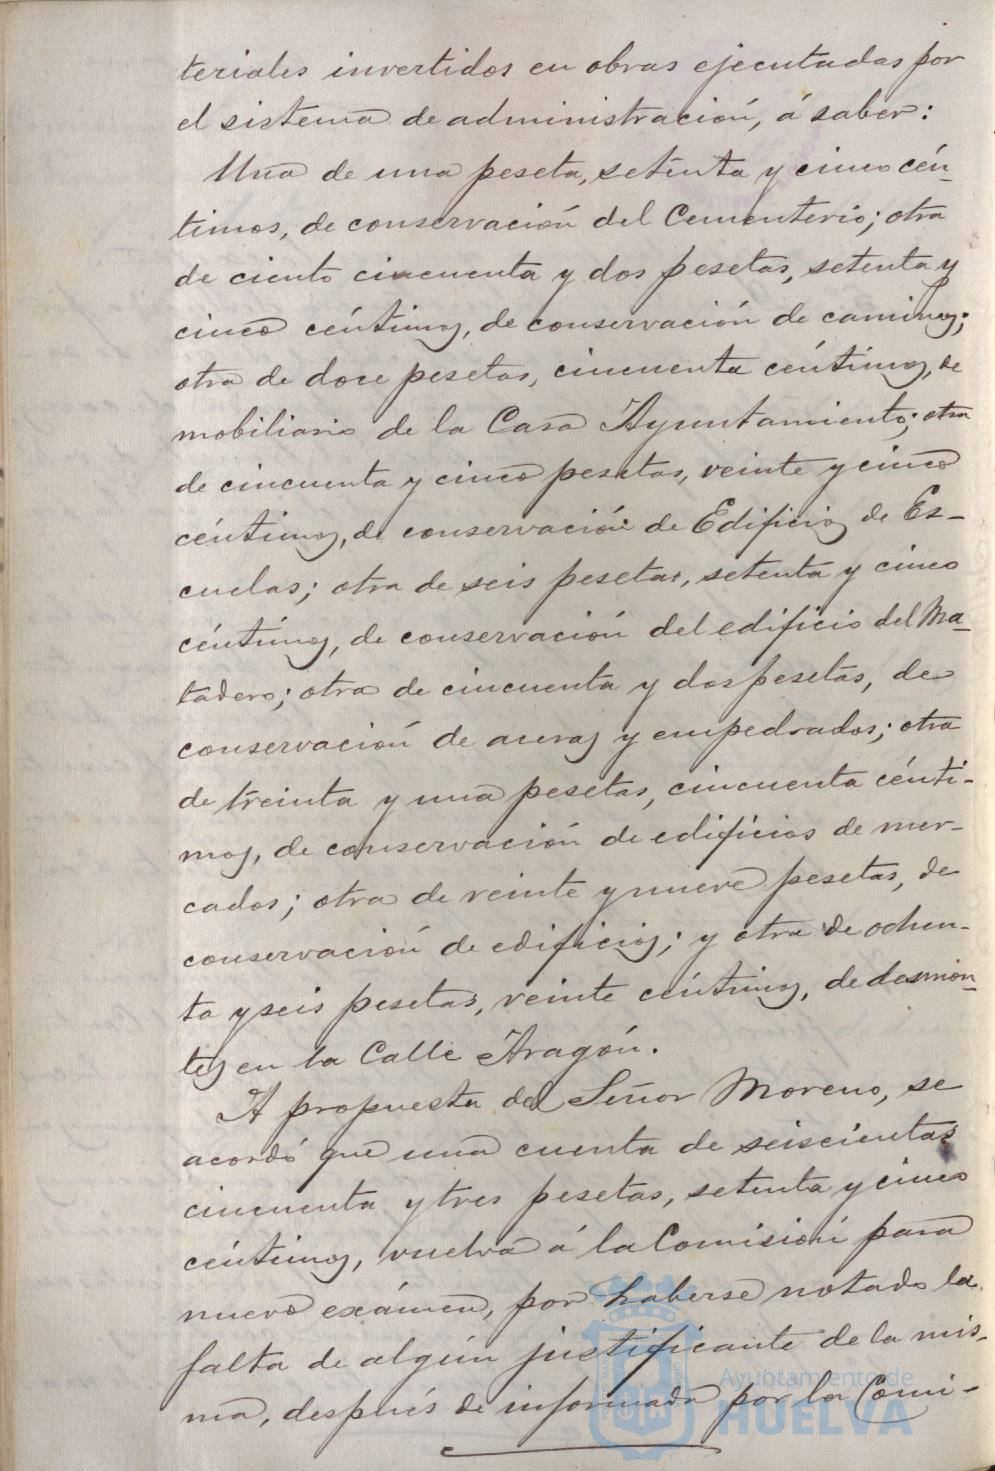 teriales invertidos en obras ejecutadas por
el sistema de administración, á saber:
Una de una peseta, setenta y cinco cén-
timos, de conservación del Cementerio; otra
de ciento cincuenta y dos pesetas, setenta y
cinco céntimos, de conservación de caminos;
otra de doce pesetas, cincuenta céntimos, de
mobiliario de la Casa Ayuntamiento; otra
de cincuenta y cinco pesetas, veinte y cinco
céntimos, de conservación de Edificios de Es-
cuelas; otra de seis pesetas, setenta y cinco
céntimos, de conservación del edificio del Ma-
tadero; otra de cincuenta y dos pesetas, de
conservación de aceras y empedrados; otra
de treinta y una pesetas, cincuenta cénti-
mos, de conservación de edificios de mer-
cados; otra de veinte y nueve pesetas, de
conservación de edificios; y otra de ochen-
ta y seis pesetas, veinte céntimos, de desmon-
tes en la Calle Aragón.
A propuesta del Señor Moreno, se
acordó que una cuenta de seiscientas
cincuenta y tres pesetas, setenta y cinco
céntimos, vuelva á la Comisión para
nuevo exámen, por haberse notado la
falta de algún justificante de la mis-
ma, después de informada por la Comi-
Ayuntamiento de
HUELVA